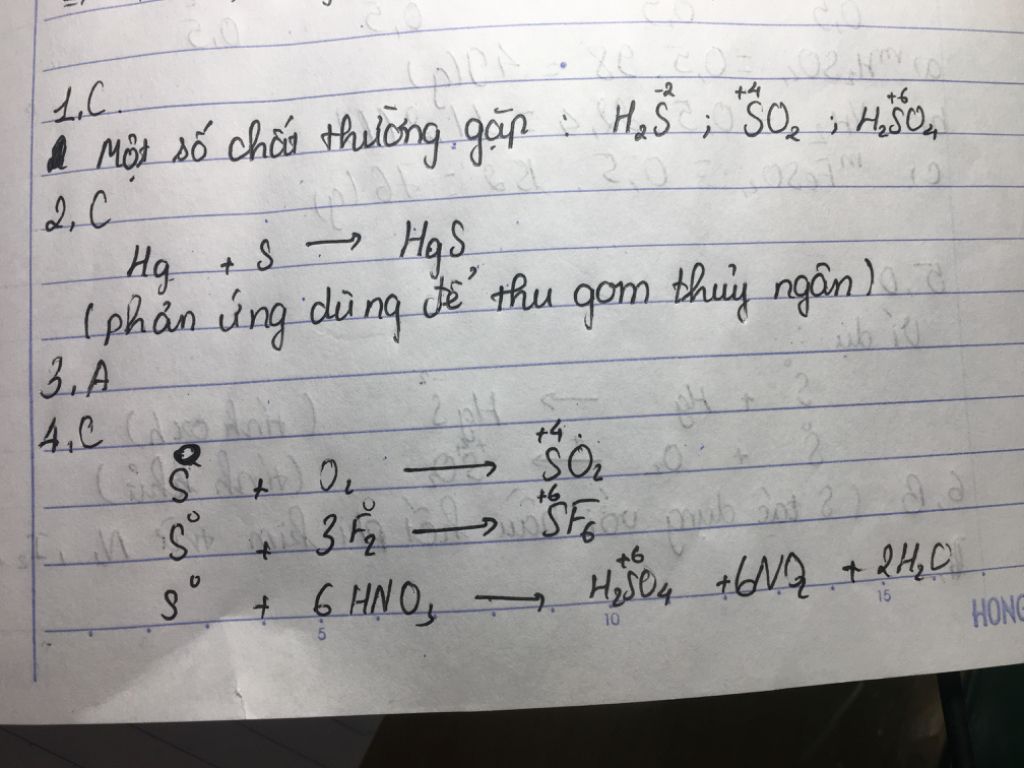 1, C.
Một số chất thường gặp : H₂S⁻² ; S⁺⁴O₂ ; H₂S⁺⁶O₄
2, C
Hg + S → HgS
(phản ứng dùng để thu gom thủy ngân)
3, A
4, C
S + O₂ → S⁺⁴O₂
S⁰ + 3F₂⁰ → S⁺⁶F₆
S⁰ + 6HNO₃ → H₂S⁺⁶O₄ + 6NO₂ + 2H₂O
5 10 15
HONG